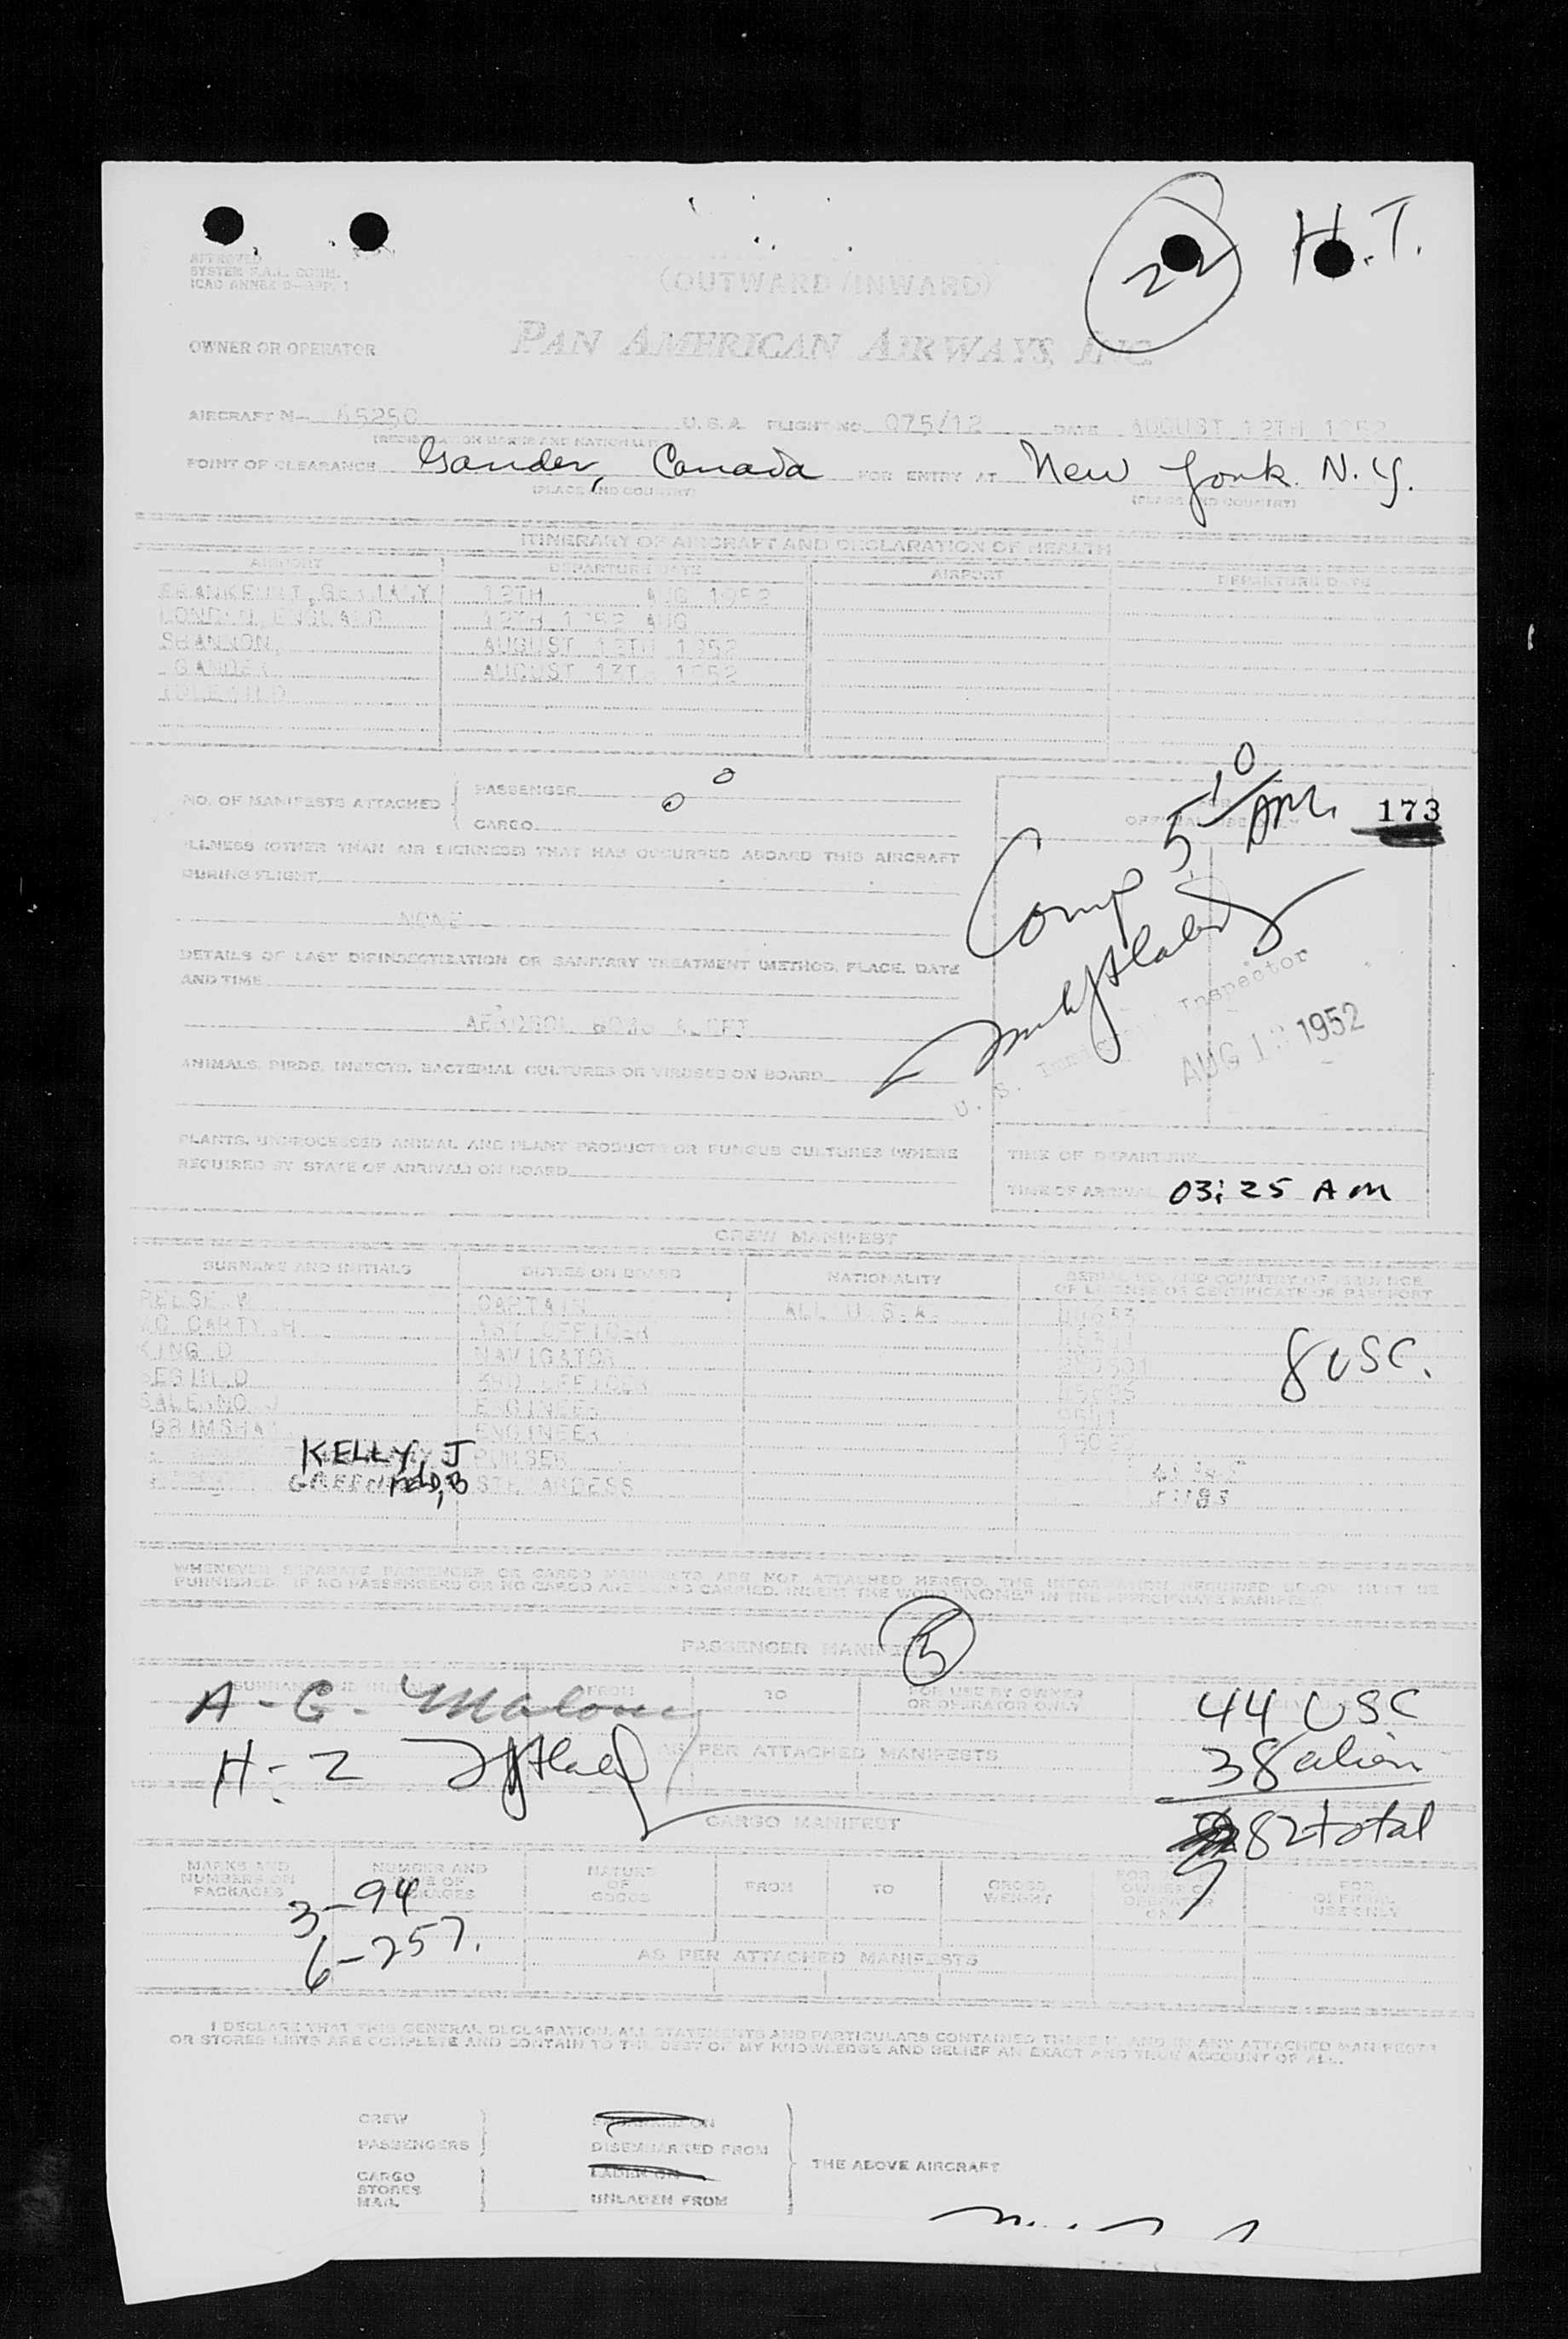 22
H.T.
APPROVED
SYSTEM F.A.L. COMM.
ICAO ANNEX 9—APP. 1
(OUTWARD/INWARD)
OWNER OR OPERATOR PAN AMERICAN AIRWAYS, INC.
AIRCRAFT N— U.S.A. FLIGHT NO. 075/12 DATE AUGUST 12TH 1952
(REGISTRATION MARKS AND NATIONALITY)
POINT OF CLEARANCE Gander, Canada FOR ENTRY AT New York N.Y.
(PLACE AND COUNTRY) (PLACE AND COUNTRY)
ITINERARY OF AIRCRAFT AND DECLARATION OF HEALTH
AIRPORT DEPARTURE DATE AIRPORT DEPARTURE DATE
FRANKFURT, GERMANY 12TH AUG 1952
LONDON, ENGLAND 12TH 1952 AUG
SHANNON, AUGUST 12TH 1952
GANDER AUGUST 13TH 1952
IDLEWILD
NO. OF MANIFESTS ATTACHED
PASSENGER 0
CARGO 0
173
ILLNESS (OTHER THAN AIR SICKNESS) THAT HAS OCCURRED ABOARD THIS AIRCRAFT
DURING FLIGHT
NONE
DETAILS OF LAST DISINSECTIZATION OR SANITARY TREATMENT (METHOD, PLACE, DATE
AND TIME
AEROSOL BOMB
ANIMALS, BIRDS, INSECTS, BACTERIAL CULTURES OR VIRUSES ON BOARD
PLANTS, UNPROCESSED ANIMAL AND PLANT PRODUCTS OR FUNGUS CULTURES (WHERE
REQUIRED BY STATE OF ARRIVAL) ON BOARD
FOR
OFFICIAL USE ONLY
Comp 5 10 AM.
U. S. Immigrant Inspector
AUG 1 1952
TIME OF DEPARTURE
TIME OF ARRIVAL 03:25 AM
CREW MANIFEST
SURNAME AND INITIALS DUTIES ON BOARD NATIONALITY SERIAL NO. AND COUNTRY OF ISSUANCE
OF LICENSE OR CERTIFICATE OR PASSPORT
CAPTAIN ALL U.S.A.
MC CARTY H 1ST OFFICER
KING D NAVIGATOR
OFFICER
SALERNO J ENGINEER
GRIMSHAW ENGINEER
KELLY, J PURSER
GREENfield, B STEWARDESS
8 USC.
WHENEVER SEPARATE PASSENGER OR CARGO MANIFESTS ARE NOT ATTACHED HERETO, THE INFORMATION REQUIRED BELOW MUST BE
FURNISHED. IF NO PASSENGERS OR NO CARGO ARE BEING CARRIED, INSERT THE WORD "NONE" IN THE APPROPRIATE MANIFEST.
PASSENGER MANIFEST
5
SURNAME AND INITIALS FROM TO FOR USE BY OWNER
OR OPERATOR ONLY
A - G - Malone
44 USC
H - Z
AS PER ATTACHED MANIFESTS
38 alien
82 total
CARGO MANIFEST
MARKS AND
NUMBERS ON
PACKAGES
NUMBER AND
TYPE OF
PACKAGES
NATURE
OF
GOODS
FROM
TO
GROSS
WEIGHT
FOR USE BY
OWNER OR
OPERATOR
ONLY
FOR
OFFICIAL
USE ONLY
3-94
6-257.
AS PER ATTACHED MANIFESTS
I DECLARE THAT THIS GENERAL DECLARATION, ALL STATEMENTS AND PARTICULARS CONTAINED THEREIN AND IN ANY ATTACHED MANIFESTS
OR STORES LISTS ARE COMPLETE AND CONTAIN TO THE BEST OF MY KNOWLEDGE AND BELIEF AN EXACT AND TRUE ACCOUNT OF ALL.
CREW
PASSENGERS
EMBARKED ON
DISEMBARKED FROM
CARGO
STORES
MAIL
LADEN ON
UNLADEN FROM
THE ABOVE AIRCRAFT